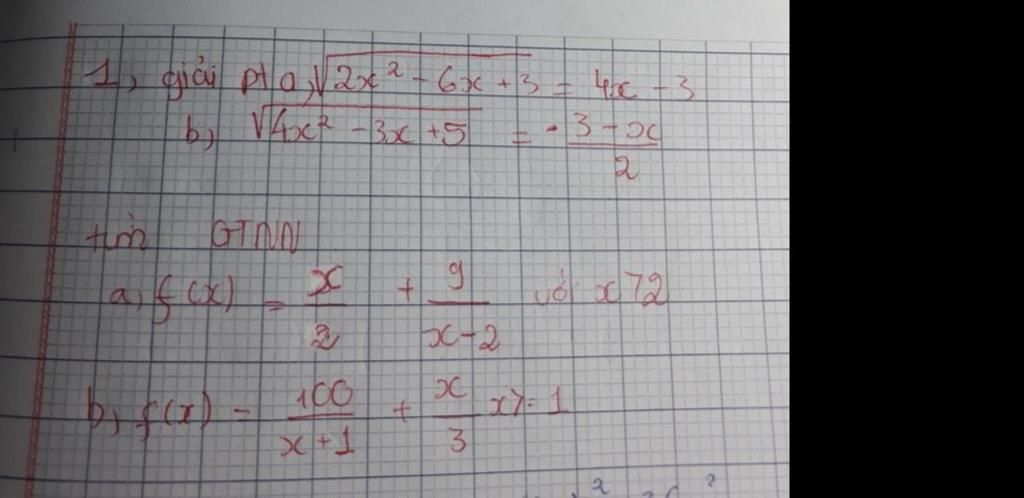 1, giải pt a, √2x² - 6x + 3 = 4x - 3
b, √4x² - 3x + 5 = - 3 - x / 2
tìm GTNN
a, f(x) = x/2 + 9/x-2 với x > 2
b, f(x) = 100/x+1 + x/3 x > - 1